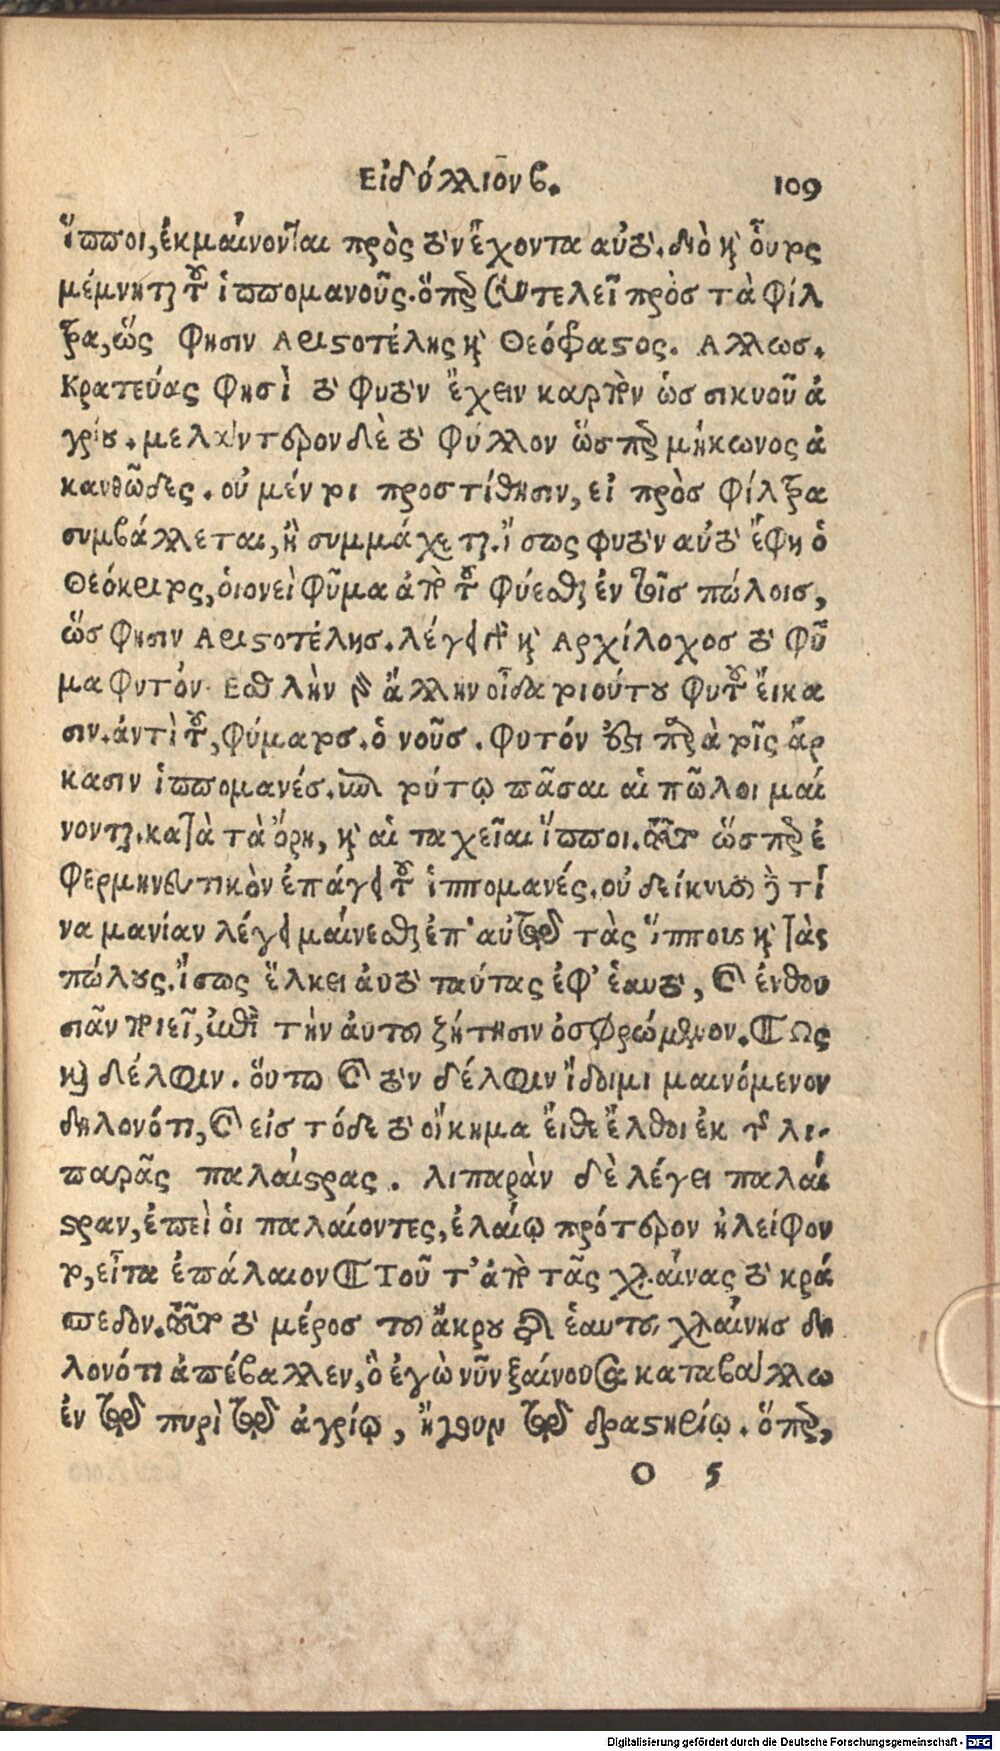 Εἰδύλλιον β. 109
ἵπποι, ἐκμαίνονται πρὸς τὸν ἔχοντα αὐτό. διὸ καὶ οὗτος
μέμνηται τοῦ ἱππομανοῦς. ὅπερ συντελεῖ πρὸς τὰ φίλ
τρα, ὥς φησιν Αριστοτέλης καὶ Θεόφραστος. Αλλως.
Κρατεύας φησὶ τὸ φυτὸν ἔχειν καρπὸν ὡς σικυοῦ ἀ
γρίου. μελάντερον δὲ τὸ φύλλον ὥσπερ μήκωνος ἀ
κανθῶδες. οὐ μέντοι προστίθησιν, εἰ πρὸς φίλτρα
συμβάλλεται, ἢ συμμάχεται. ἴσως φυτὸν αὐτὸ ἔφη ὁ
Θεόκριτος, οἱονεὶ φῦμα ἀπὸ τοῦ φύεσθαι ἐν τοῖς πώλοις,
ὥς φησιν Αριστοτέλης. λέγει γὰρ καὶ Αρχίλοχος τὸ φῦ
μα φυτόν. Εσθλὴν γὰρ ἄλλην οἶδα τοιούτου φυτοῦ ἔικα
σιν. ἀντὶ τοῦ, φύματος. ὁ νοῦς. φυτόν ἐστι παρὰ τοῖς ἄρ
κασιν ἱππομανές. ἐπὶ τούτῳ πᾶσαι αἱ πῶλοι μαί
νονται. κατὰ τὰ ὄρη, καὶ αἱ ταχεῖαι ἵπποι. τοῦτο ὥσπερ ἐ
φερμηνευτικὸν ἐπάγει τοῦ ἱππομανές. οὐ δείκνυσι γὰρ τί
να μανίαν λέγει μαίνεσθαι ἐπ' αὐτῷ τὰς ἵππους καὶ τὰς
πώλους. ἴσως ἕλκει ἀυτὸ ταύτας ἐφ' ἑαυτό, καὶ ἐνθου
σιᾶν ποιεῖ, ἐπὶ τὴν ἀυτοῦ ζήτησιν ὀσφρώμενον. ¶ Ως
καὶ δέλφιν. ὅυτω καὶ τὸν δέλφιν ἴδοιμι μαινόμενον
δηλονότι, καὶ εἰς τόδε τὸ οἴκημα ἔιθε ἔλθοι ἐκ τῆς λι-
παρᾶς παλαίστρας. λιπαρὰν δὲ λέγει παλαί
στραν, ἐπεὶ ὁι παλαίοντες, ἐλαίῳ πρότερον ἠλείφον
το, εἶτα ἐπάλαιον ¶ Τοῦ τ' ἀπὸ τᾶς χλαίνας τὸ κρά
πεδον. τοῦτο τὸ μέρος τοῦ ἄκρου τῆς ἑαυτοῦ χλαίνης δη
λονότι ἀπέβαλλεν, ὃ ἐγὼ νῦν ξαίνουσα καταβάλλω
ἐν τῷ πυρὶ τῷ ἀγρίῳ, ἤγουν τῷ δραστηρίῳ. ὅπερ,
O 5
Digitalisierung gefördert durch die Deutsche Forschungsgemeinschaft - DFG